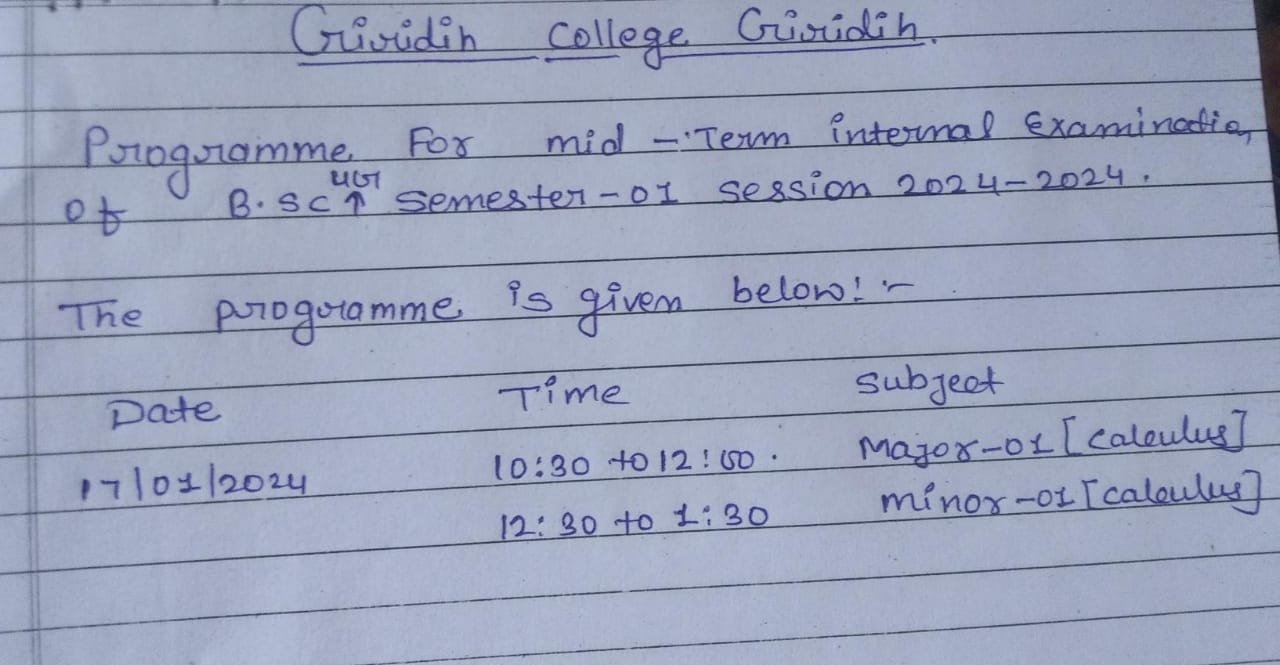 Giridih College Giridih.
Programme For mid - Term internal Examination
of B.Sc UG Semester-01 session 2024-2024.
The programme is given below:-
Date Time Subject
17/01/2024 10:30 to 12:00. Major-01 [calculus]
12:30 to 1:30 minor-01 [calculus]